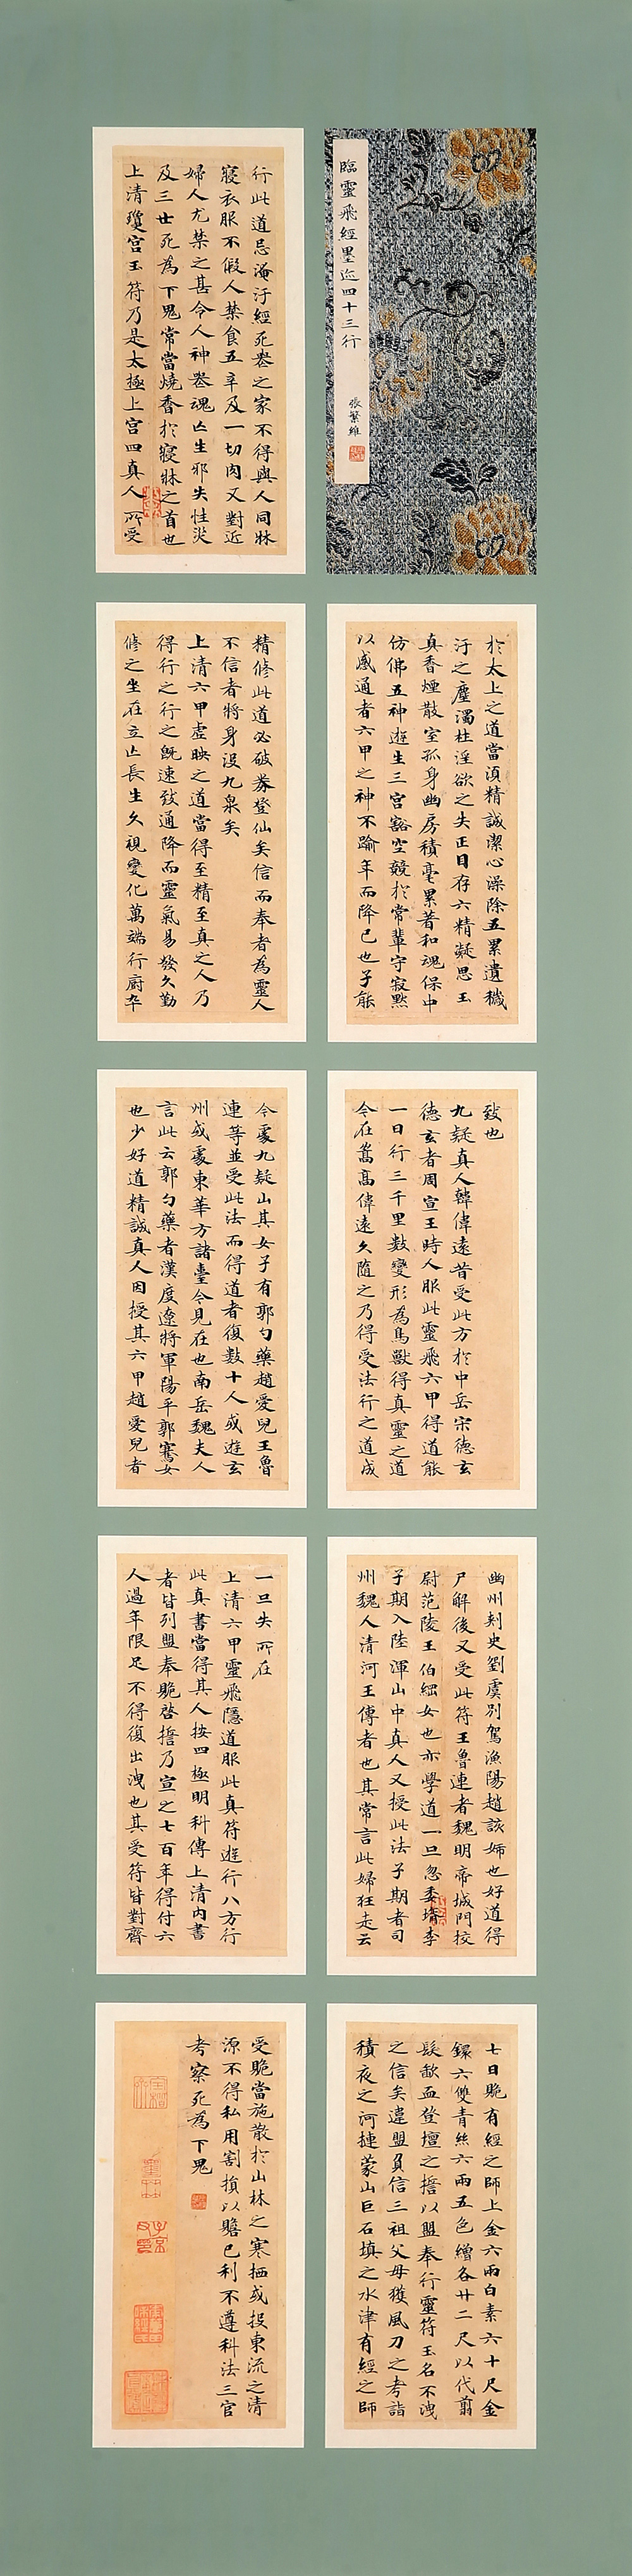 臨靈飛經墨迹四十三行
張繁維
行此道忌淹汙經死喪之家不得與人同牀
寢衣服不假人禁食五辛及一切肉又對近
婦人尤禁之甚令人神喪魂亡生邪失性災
及三世死為下鬼常當燒香於寢牀之首也
上清瓊宮玉符乃是太極上宮四真人所受
於太上之道當湏精誠潔心澡除五累遺穢
汙之塵濁杜淫欲之失正目存六精凝思玉
真香煙散室孤身幽房積毫累著和魂保中
仿佛五神遊生三宮豁空競於常輩守寂默
以感通者六甲之神不踰年而降己也子能
精修此道必破券登仙矣信而奉者為靈人
不信者將身沒九泉矣
上清六甲虛映之道當得至精至真之人乃
得行之行之既速致通降而靈氣易發久勤
修之坐在立亡長生久視變化萬端行廚卒
致也
九疑真人韓偉遠昔受此方於中岳宋德玄
德玄者周宣王時人服此靈飛六甲得道能
一日行三千里數變形為鳥獸得真靈之道
今在嵩高偉遠久隨之乃得受法行之道成
今處九疑山其女子有郭勺藥趙愛兒王魯
連等並受此法而得道者復數十人或遊玄
州或處東華方諸臺今見在也南岳魏夫人
言此云郭勺藥者漢度遼將軍陽平郭騫女
也少好道精誠真人因授其六甲趙愛兒者
幽州刺史劉虞別駕漁陽趙該姊也好道得
尸解後又受此符王魯連者魏明帝城門校
尉范陵王伯綱女也亦學道一旦忽委壻李
子期入陸渾山中真人又授此法子期者司
州魏人清河王傳者也其常言此婦狂走云
一旦失所在
上清六甲靈飛隱道服此真符遊行八方行
此真書當得其人按四極明科傳上清內書
者皆列盟奉貺啓擔乃宣之七百年得付六
人過年限足不得復出洩也其受符皆對齊
七日貺有經之師上金六兩白素六十尺金
鐶六雙青絲六兩五色繒各廿二尺以代翦
髮歃血登壇之擔以盟奉行靈符玉名不洩
之信矣違盟負信三祖父母獲風刀之考詣
積夜之河揵蒙山巨石填之水津有經之師
受貺當施散於山林之寒栖或投東流之清
源不得私用割損以贍己利不遵科法三官
考察死為下鬼